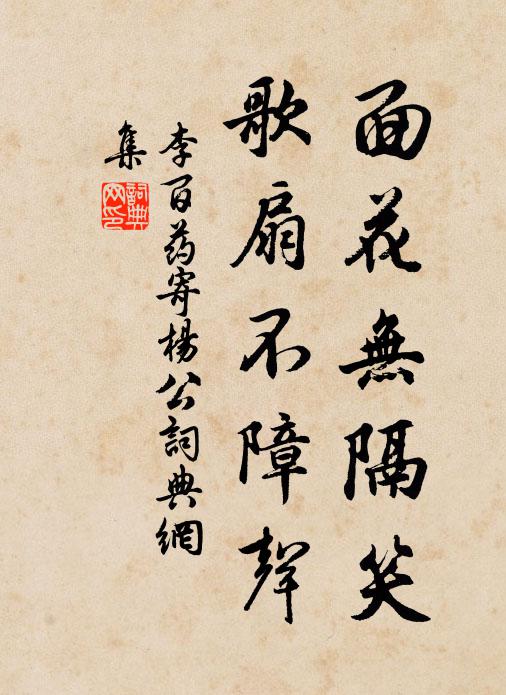 面花無隔笑
歌扇不障聲
李百药寄楊公詞典網
集
詞典
网印